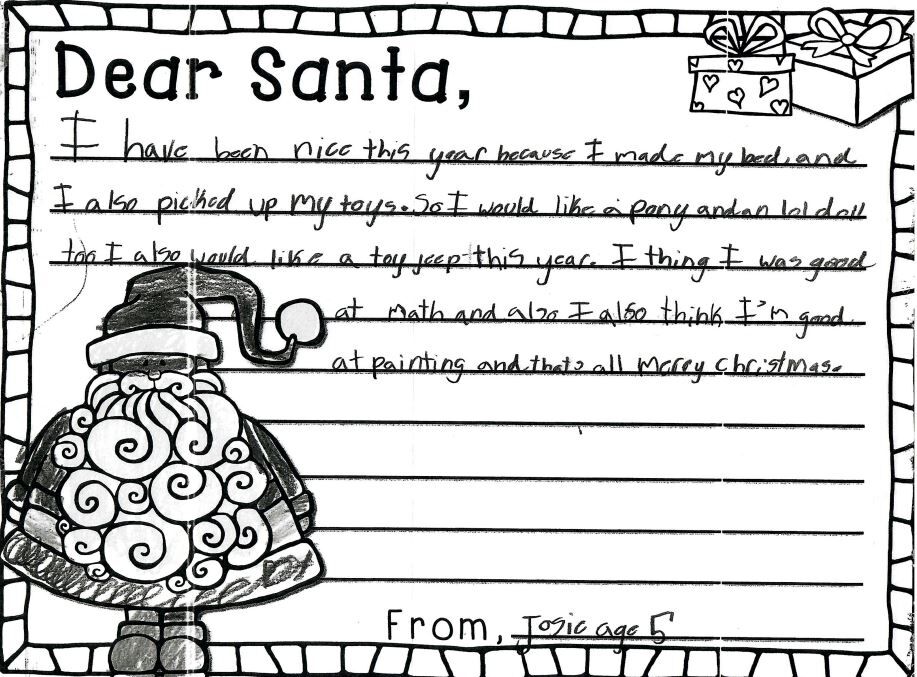 Dear Santa,
I have been nice this year because I made my bed, and
I also picked up my toys. So I would like a pony and an lol doll
too I also would like a toy jeep this year. I thing I was good
at math and also I also think I'm good
at painting and thats all Merry Christmas.
From, Josie age 5